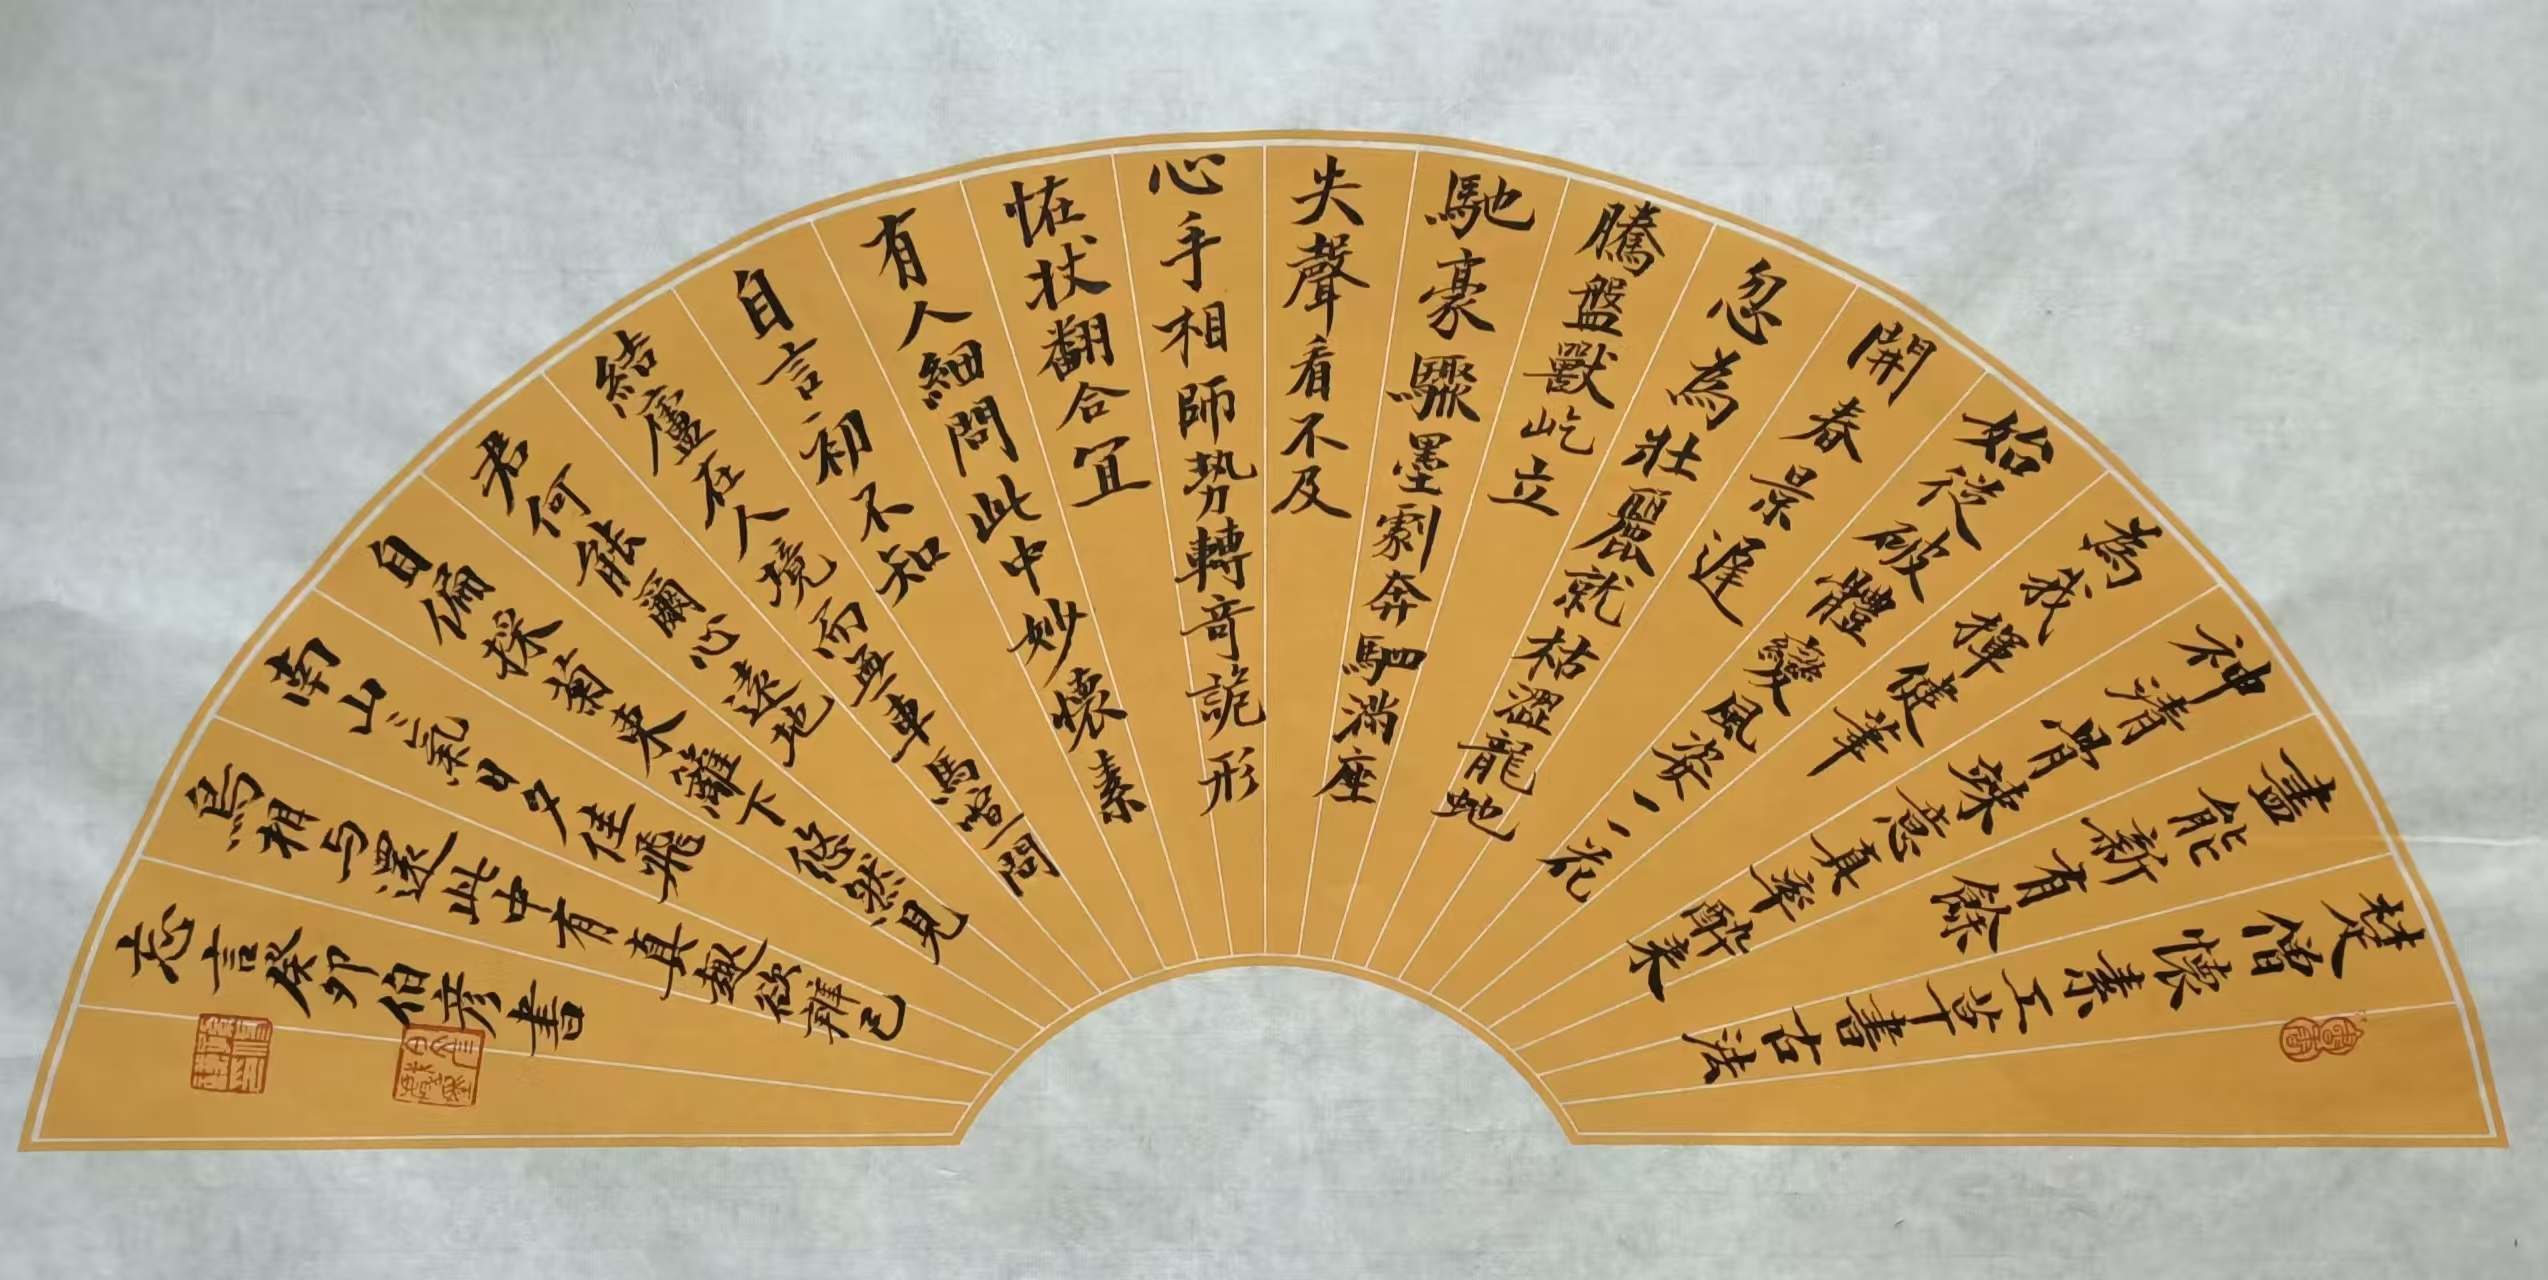 楚僧懷素工草書古法
盡能新有餘
神清骨竦意真率醉来
為我揮健筆
始從破體變風姿一一花
開春景遲
忽為壯麗就枯澀龍蛇
騰盤獸屹立
馳豪驟墨劇奔駟滿座
失聲看不及
心手相師勢轉奇詭形
恠状翻合宜
有人細問此中妙懷素
自言初不知
結廬在人境而無車馬喧問
君何能爾心遠地
自偏採菊東籬下悠然見
南山氣日夕佳飛
鳥相与還此中有真趣欲辨已
忘言癸卯伯彦書